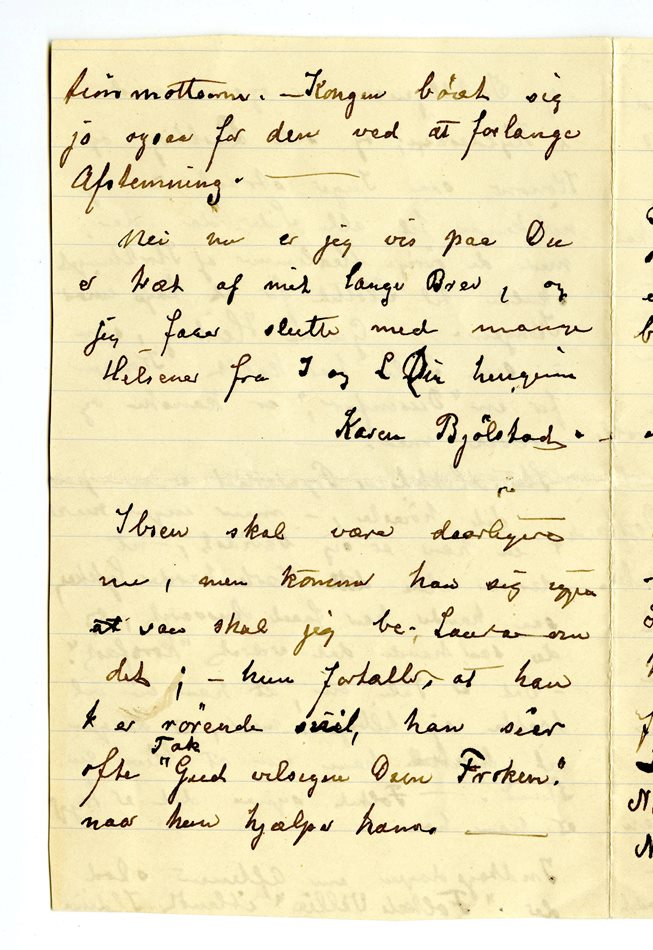 tiörmotterne. — Kongen böiet sig
jo ogsaa for den ved at forlange
Afstemning. —
Nei nu er jeg vis paa Du
er træt af mit lange Brev, og
jeg faaer slutte med mange
Hilsener fra I og L Din hengivne
Karen Bjölstad. —
Ibsen skal være daarligere
nu, men kommer han sig igjen
at saa skal jeg be Laura om
det; — hun fortaller, at han
er rörende snil, han sier
ofte "Tak Gud velsigne Dem Frøken."
naar hun hjælper ham. —